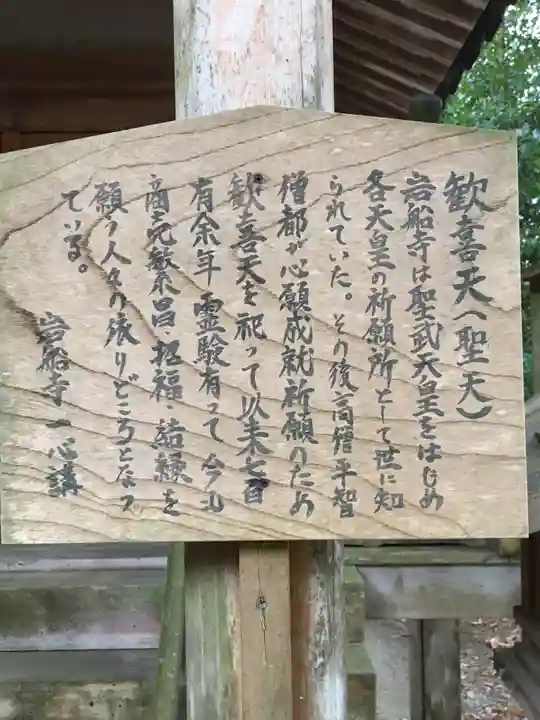 歓喜天(聖天)
岩船寺は聖武天皇をはじめ
各天皇の祈願所として世に知
られていた。その後高僧平智
僧都が心願成就祈願のため
歓喜天を祀って以来七百
有余年霊験有って今北
商売繁昌、招福、結縁を
願う人々の依りどころとなっ
ている。
岩船寺一心講